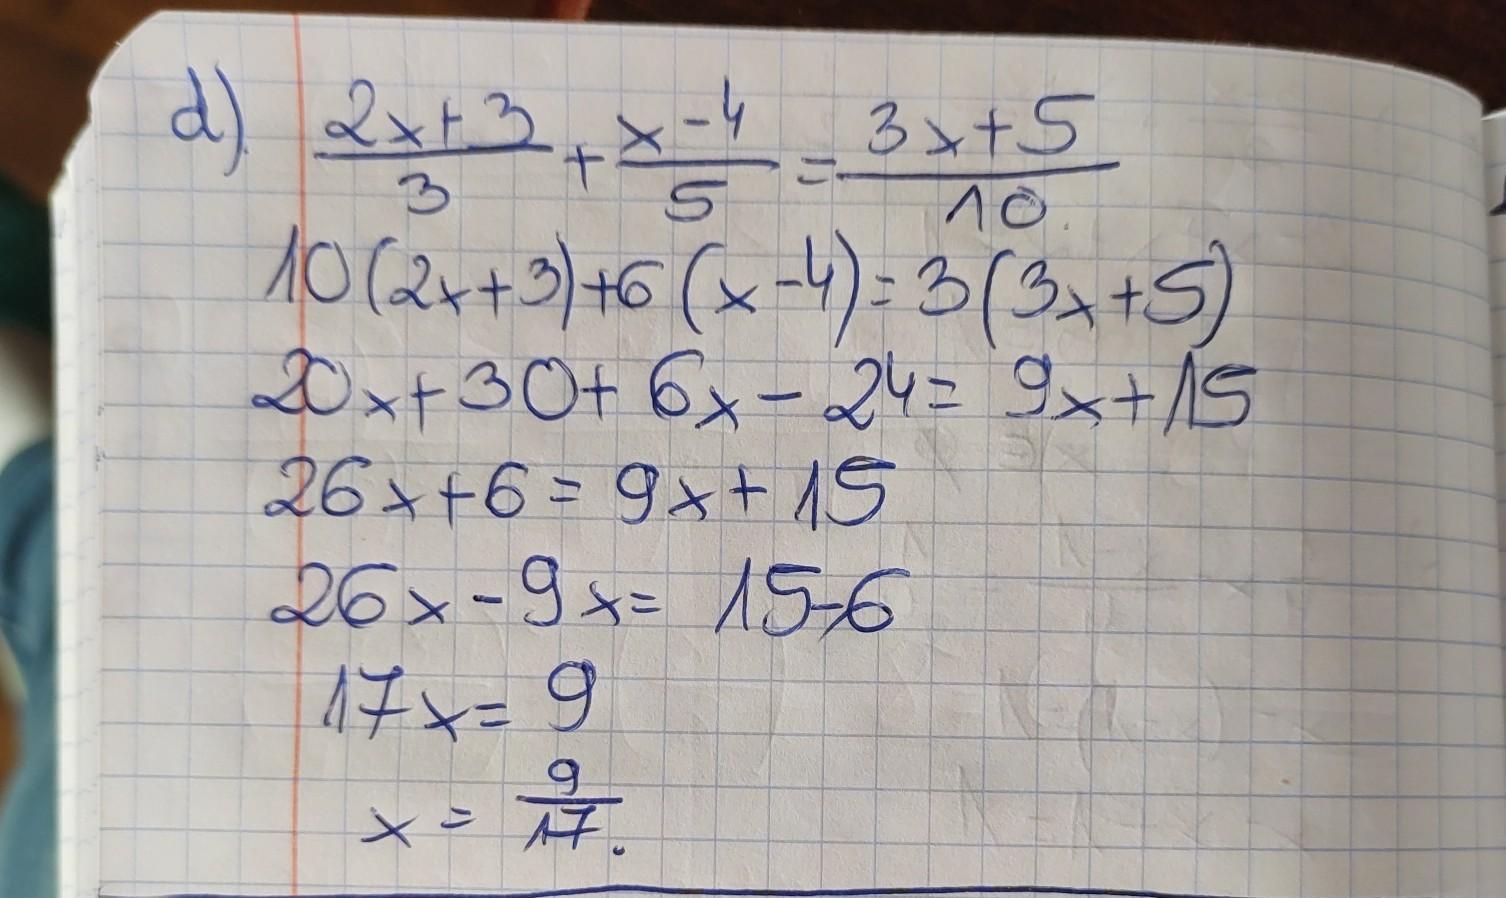 d) (2x+3)/3 + (x-4)/5 = (3x+5)/10
10(2x+3)+6(x-4)=3(3x+5)
20x+30+6x-24=9x+15
26x+6=9x+15
26x-9x=15-6
17x=9
x=9/17.